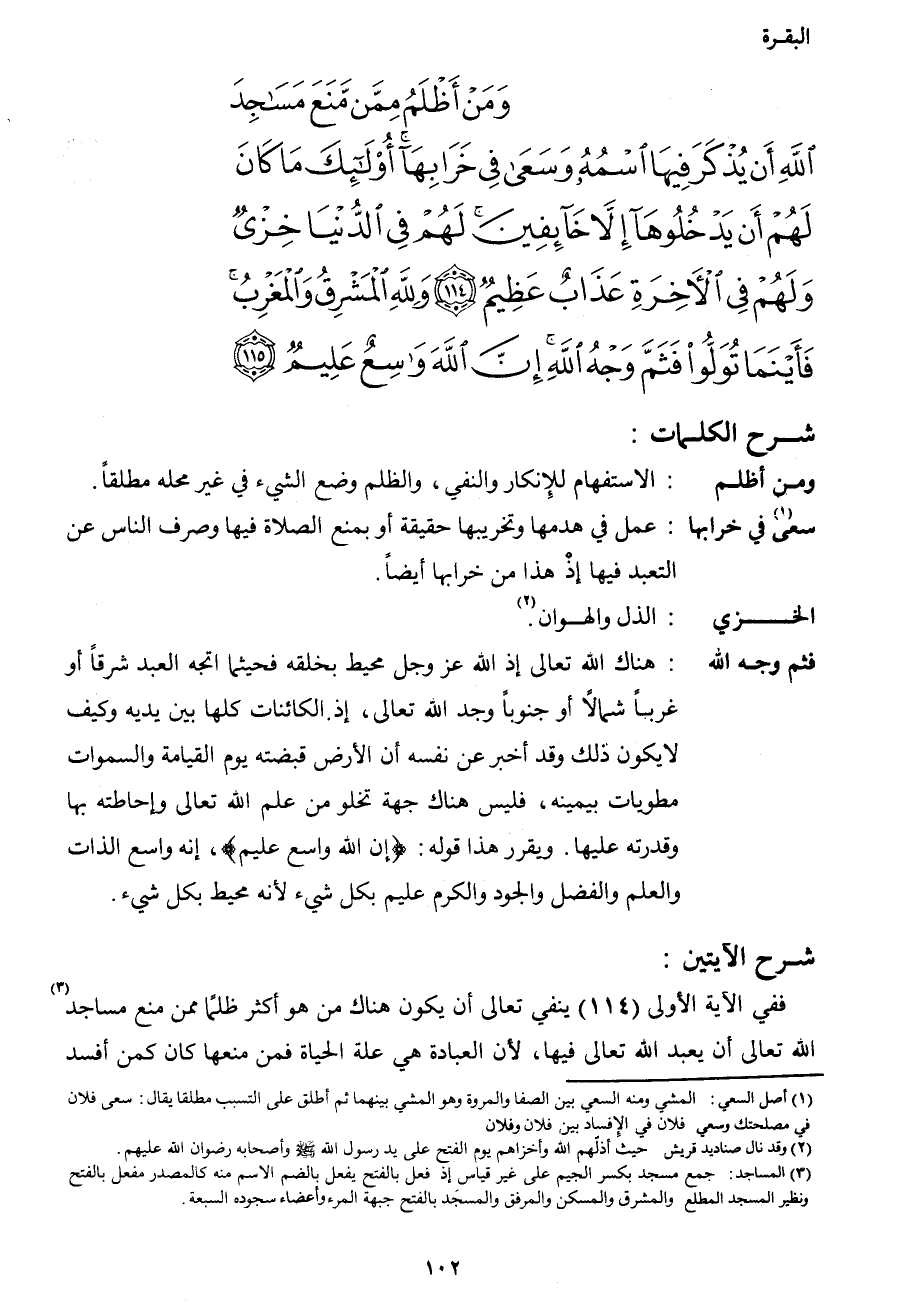 البقـرة
وَمَنْ أَظْلَمُ مِمَّن مَّنَعَ مَسَـٰجِدَ
ٱللَّهِ أَن يُذْكَرَ فِيهَا ٱسْمُهُۥ وَسَعَىٰ فِى خَرَابِهَآ ۚ أُو۟لَـٰٓئِكَ مَا كَانَ
لَهُمْ أَن يَدْخُلُوهَآ إِلَّا خَآئِفِينَ ۚ لَهُمْ فِى ٱلدُّنْيَا خِزْىٌ
وَلَهُمْ فِى ٱلْـَٔاخِرَةِ عَذَابٌ عَظِيمٌ ١١٤ وَلِلَّهِ ٱلْمَشْرِقُ وَٱلْمَغْرِبُ ۚ
فَأَيْنَمَا تُوَلُّوا۟ فَثَمَّ وَجْهُ ٱللَّهِ ۚ إِنَّ ٱللَّهَ وَٰسِعٌ عَلِيمٌ ١١٥
شـرح الكلـمات :
ومـن أظلـم : الاستفهام للإنكار والنفي، والظلم وضع الشيء في غير محله مطلقاً.
سعى(١) في خرابها : عمل في هدمها وتخريبها حقيقة أو بمنع الصلاة فيها وصرف الناس عن
التعبد فيها إذْ هذا من خرابها أيضاً.
الخـــزي : الذل والهـوان.(٢)
فثم وجـه الله : هناك الله تعالى إذ الله عز وجل محيط بخلقه فحيثما اتجه العبد شرقاً أو
غربـاً شمالًا أو جنوباً وجد الله تعالى، إذ.الكائنات كلها بين يديه وكيف
لايكون ذلك وقد أخبر عن نفسه أن الأرض قبضته يوم القيامة والسموات
مطويات بيمينه، فليس هناك جهة تخلو من علم الله تعالى وإحاطته بها
وقدرته عليها. ويقرر هذا قوله: ﴿إن الله واسع عليم﴾، إنه واسع الذات
والعلم والفضل والجود والكرم عليم بكل شيء لأنه محيط بكل شيء.
شـرح الآيتين :
ففي الآية الأولى (١١٤) ينفي تعالى أن يكون هناك من هو أكثر ظلمًا ممن منع مساجد(٣)
الله تعالى أن يعبد الله تعالى فيها، لأن العبادة هي علة الحياة فمن منعها كان كمن أفسد
(١) أصل السعي: المشي ومنه السعي بين الصفا والمروة وهو المشي بينهما ثم أطلق على التسبب مطلقا يقال: سعى فلان
في مصلحتك وسعي فلان في الإفساد بين فلان وفلان
(٢) وقد نال صناديد قريش حيث أذلّهم الله وأخزاهم يوم الفتح على يد رسول الله ﷺ وأصحابه رضوان الله عليهم.
(٣) المساجد: جمع مسجد بكسر الجيم على غير قياس إذ فعل بالفتح يفعل بالضم الاسم منه كالمصدر مفعل بالفتح
ونظير المسجد المطلع والمشرق والمسكن والمرفق والمسجَد بالفتح جبهة المرء وأعضاء سجوده السبعة.
١٠٢